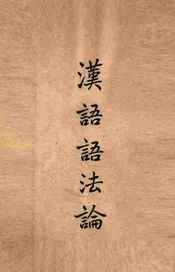 漢語語法論